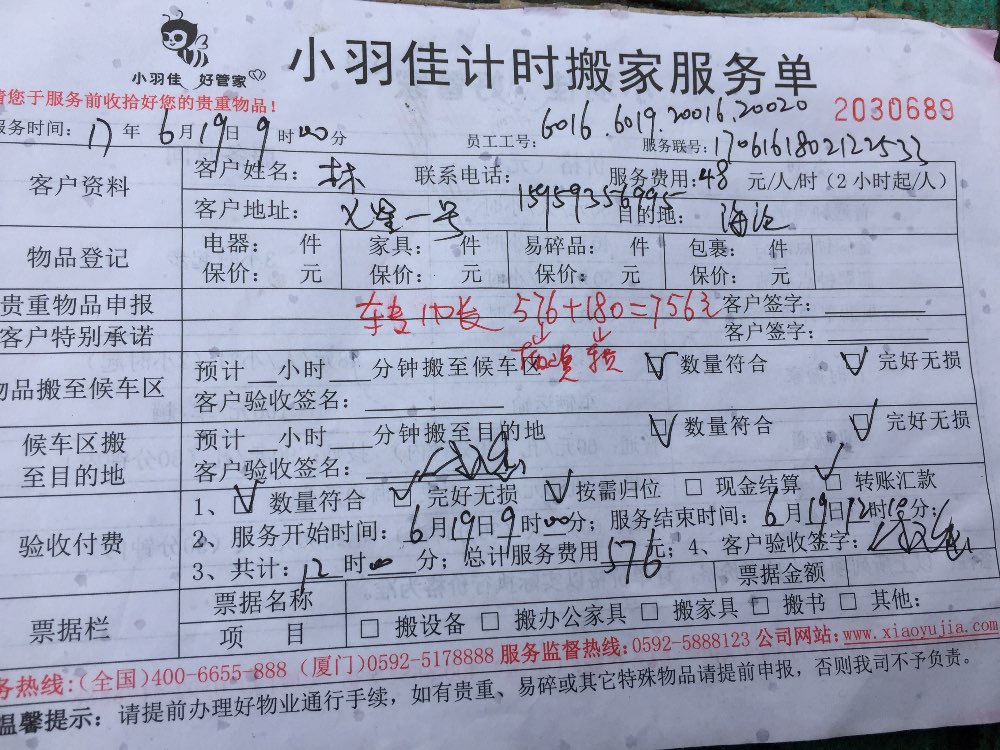 小羽佳 好管家
小羽佳计时搬家服务单
请您于服务前收拾好您的贵重物品！
2030689
服务时间：17年6月19日9时00分 员工工号：6016.6019.20016.20020 服务联号：1706161802122533
客户资料
客户姓名：林 联系电话：15959356995 服务费用：48元/人/时（2小时起/人）
客户地址：一号 目的地：海沧
物品登记
电器： 件 家具： 件 易碎品： 件 包裹： 件
保价： 元 保价： 元 保价： 元 保价： 元
贵重物品申报 客户签字：
576+180=756
客户特别承诺 客户签字：
物品搬至候车区
预计 小时 分钟搬至候车区 数量符合 完好无损
客户验收签名：
候车区搬至目的地
预计 小时 分钟搬至目的地 数量符合 完好无损
客户验收签名：
验收付费
1、 数量符合 完好无损 按需归位 现金结算 转账汇款
2、服务开始时间：6月19日9时00分；服务结束时间：6月19日12时10分；
3、共计：12时00分；总计服务费用576元；4、客户验收签字：
票据栏
票据名称 票据金额
项 目 搬设备 搬办公家具 搬家具 搬书 其他：
服务热线：(全国)400-6655-888 (厦门)0592-5178888 服务监督热线：0592-5888123 公司网站：www.xiaoyujia.com
温馨提示：请提前办理好物业通行手续，如有贵重、易碎或其它特殊物品请提前申报，否则我司不予负责。